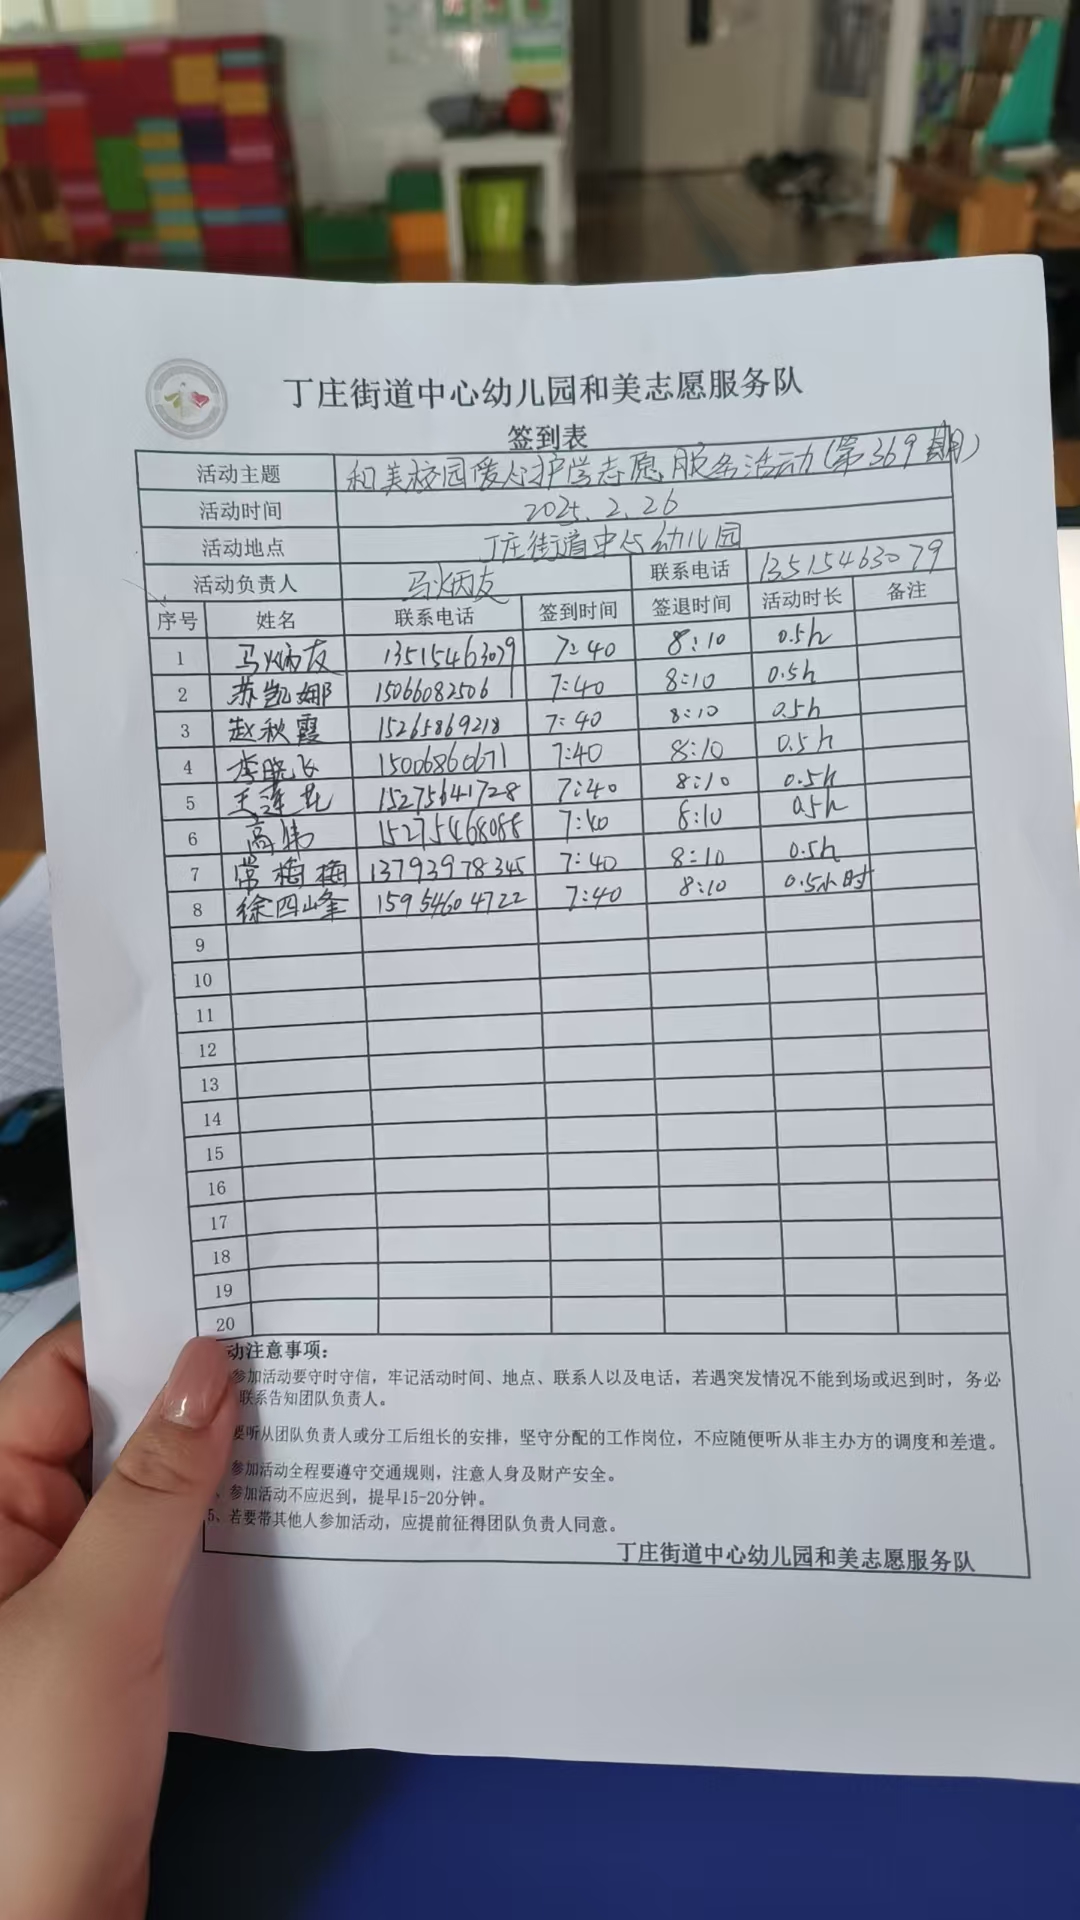 丁庄街道中心幼儿园和美志愿服务队
签到表
活动主题 和美校园爱心护学志愿服务活动(第369期)
活动时间 2025.2.26
活动地点 丁庄街道中心幼儿园
活动负责人 马炳友 联系电话 13515463079
序号 姓名 联系电话 签到时间 签退时间 活动时长 备注
1 马炳友 13515463079 7:40 8:10 0.5h
2 苏凯娜 15066082506 7:40 8:10 0.5h
3 赵秋霞 15265869218 7:40 8:10 0.5h
4 李晓飞 15006860671 7:40 8:10 0.5h
5 王莲花 15275641728 7:40 8:10 0.5h
6 高伟 15275468088 7:40 8:10 0.5h
7 常梅梅 13793978345 7:40 8:10 0.5h
8 徐四峰 15954604722 7:40 8:10 0.5小时
9
10
11
12
13
14
15
16
17
18
19
20
动注意事项：
参加活动要守时守信，牢记活动时间、地点、联系人以及电话，若遇突发情况不能到场或迟到时，务必
联系告知团队负责人。
要听从团队负责人或分工后组长的安排，坚守分配的工作岗位，不应随便听从非主办方的调度和差遣。
参加活动全程要遵守交通规则，注意人身及财产安全。
、参加活动不应迟到，提早15-20分钟。
5、若要带其他人参加活动，应提前征得团队负责人同意。
丁庄街道中心幼儿园和美志愿服务队